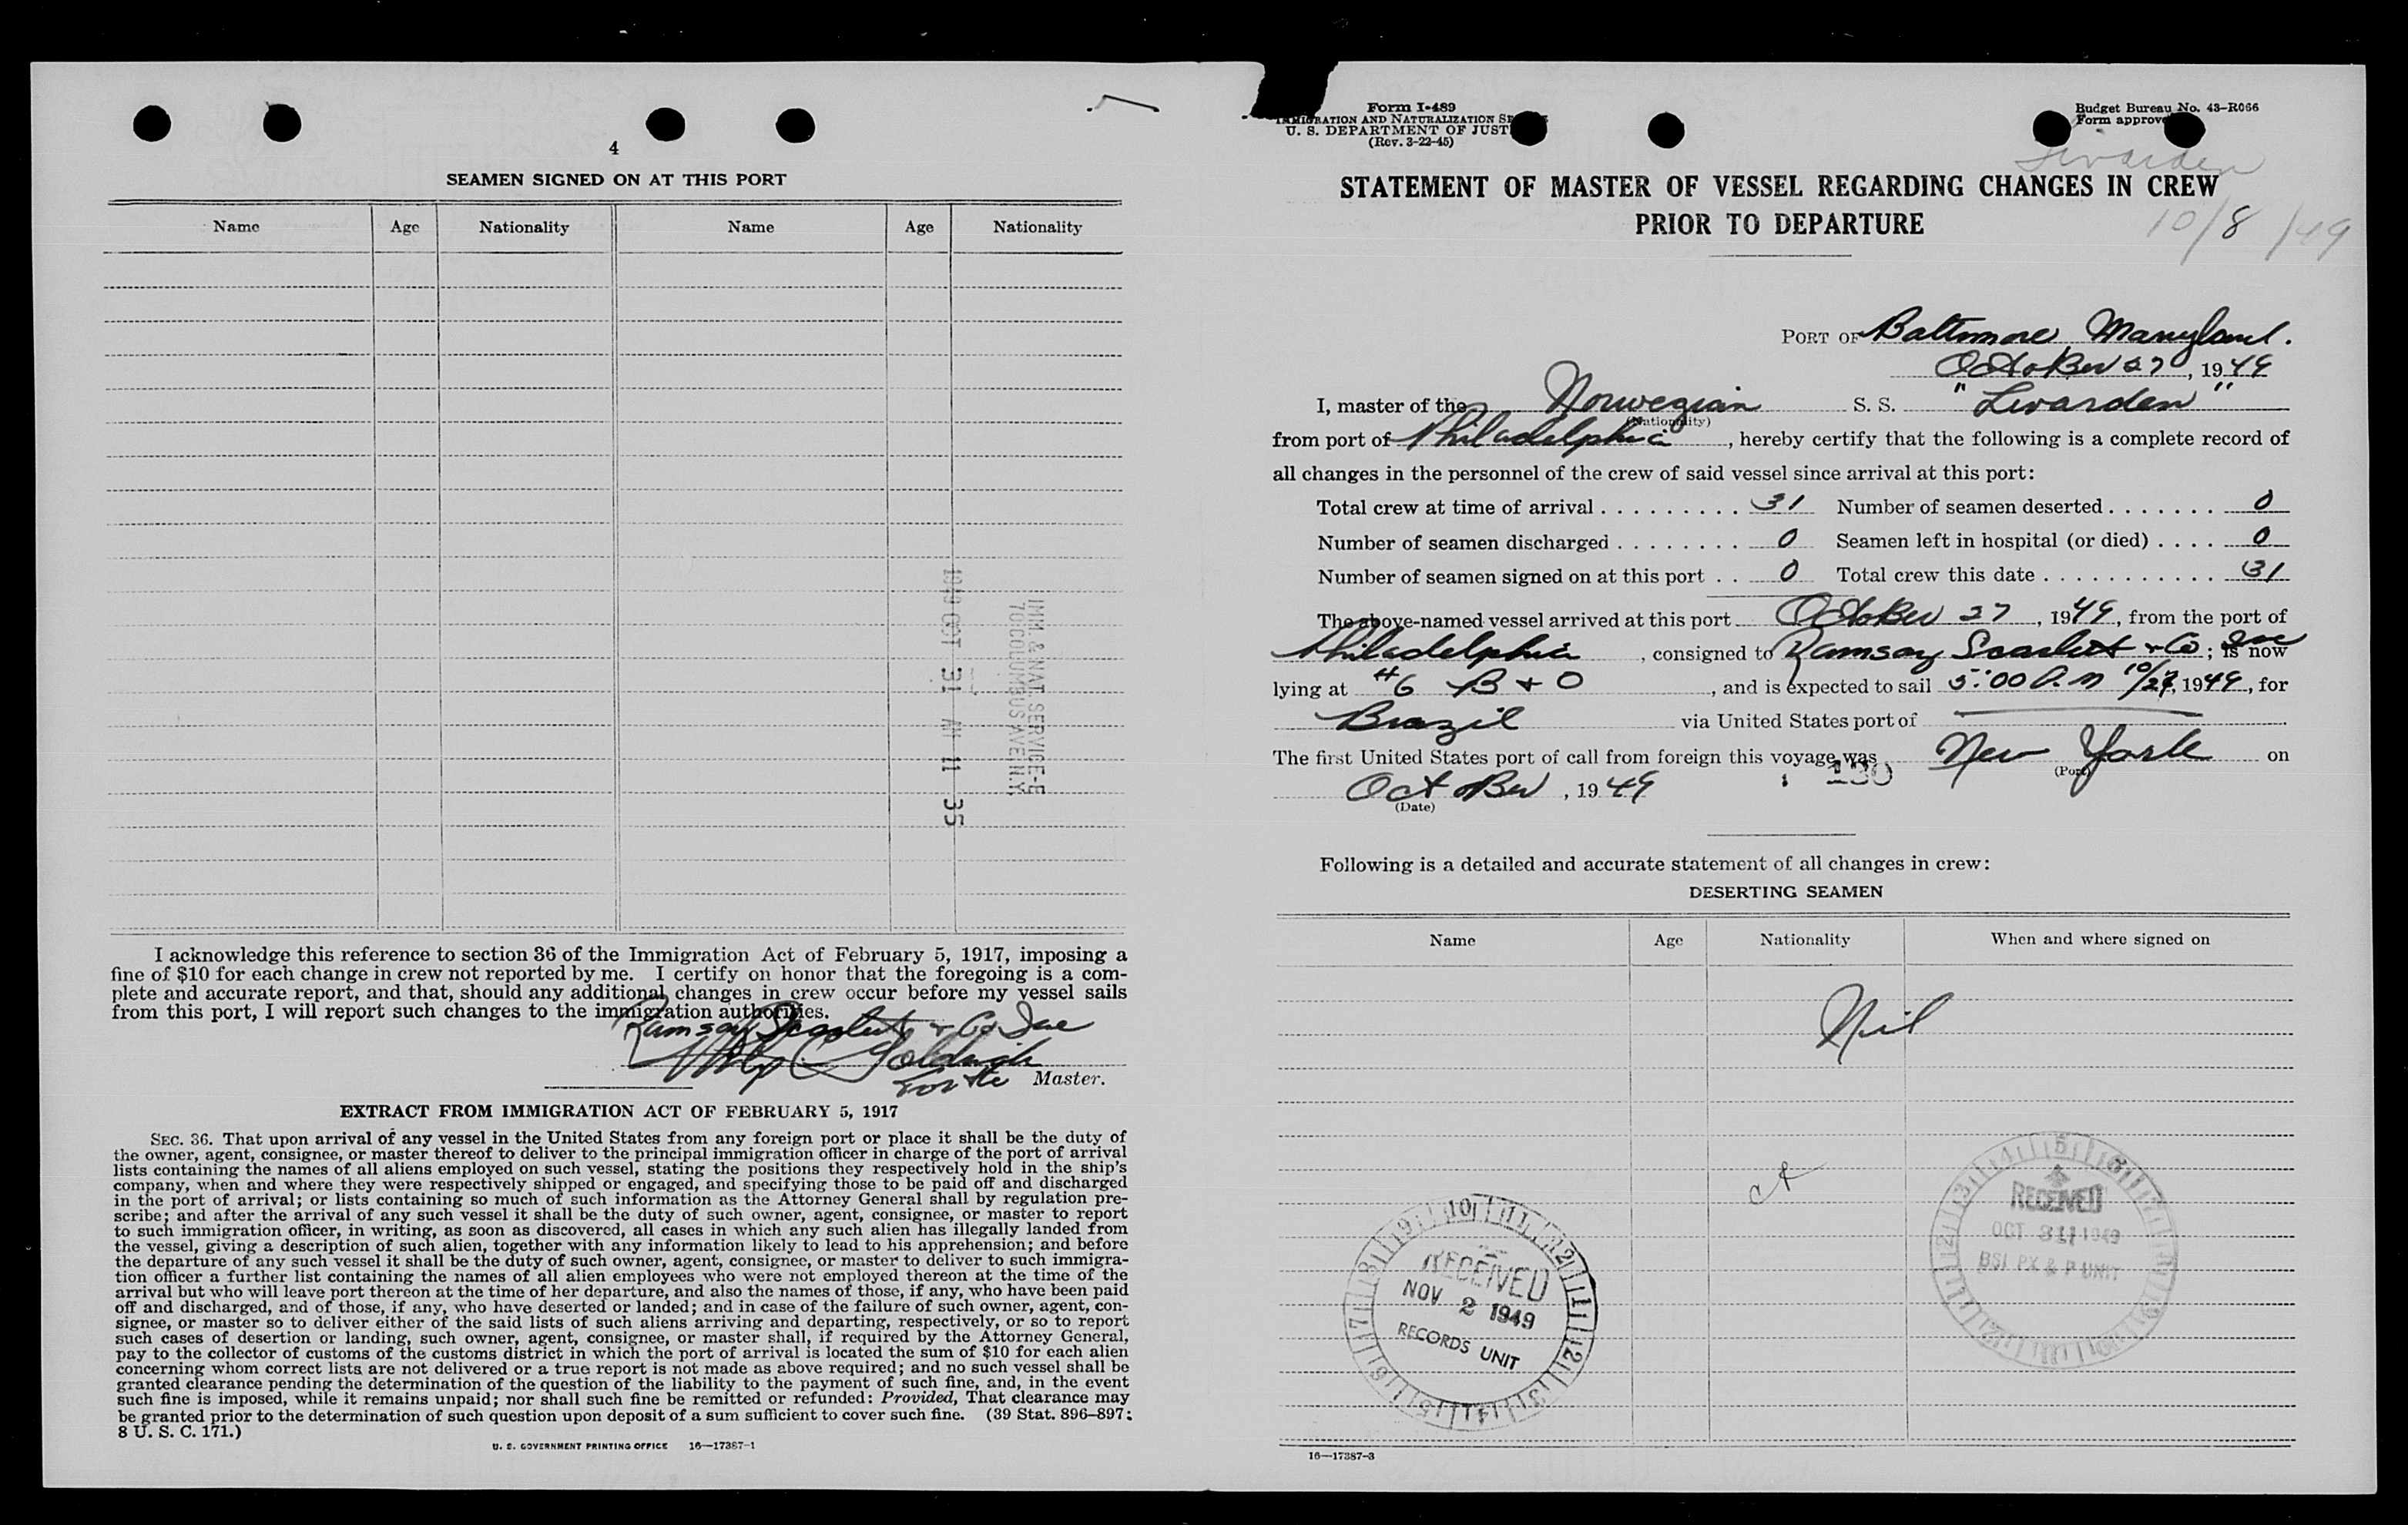 4
SEAMEN SIGNED ON AT THIS PORT
Name Age Nationality Name Age Nationality
1949 OCT 31 AM 11 35
IMM. & NAT. SERVICE-E
70 COLUMBUS AVE N.Y.
I acknowledge this reference to section 36 of the Immigration Act of February 5, 1917, imposing a
fine of $10 for each change in crew not reported by me. I certify on honor that the foregoing is a com-
plete and accurate report, and that, should any additional changes in crew occur before my vessel sails
from this port, I will report such changes to the immigration authorities.
Ramsay Scarlett & Co Inc
For the Master.
EXTRACT FROM IMMIGRATION ACT OF FEBRUARY 5, 1917
SEC. 36. That upon arrival of any vessel in the United States from any foreign port or place it shall be the duty of
the owner, agent, consignee, or master thereof to deliver to the principal immigration officer in charge of the port of arrival
lists containing the names of all aliens employed on such vessel, stating the positions they respectively hold in the ship's
company, when and where they were respectively shipped or engaged, and specifying those to be paid off and discharged
in the port of arrival; or lists containing so much of such information as the Attorney General shall by regulation pre-
scribe; and after the arrival of any such vessel it shall be the duty of such owner, agent, consignee, or master to report
to such immigration officer, in writing, as soon as discovered, all cases in which any such alien has illegally landed from
the vessel, giving a description of such alien, together with any information likely to lead to his apprehension; and before
the departure of any such vessel it shall be the duty of such owner, agent, consignee, or master to deliver to such immigra-
tion officer a further list containing the names of all alien employees who were not employed thereon at the time of the
arrival but who will leave port thereon at the time of her departure, and also the names of those, if any, who have been paid
off and discharged, and of those, if any, who have deserted or landed; and in case of the failure of such owner, agent, con-
signee, or master so to deliver either of the said lists of such aliens arriving and departing, respectively, or so to report
such cases of desertion or landing, such owner, agent, consignee, or master shall, if required by the Attorney General,
pay to the collector of customs of the customs district in which the port of arrival is located the sum of $10 for each alien
concerning whom correct lists are not delivered or a true report is not made as above required; and no such vessel shall be
granted clearance pending the determination of the question of the liability to the payment of such fine, and, in the event
such fine is imposed, while it remains unpaid; nor shall such fine be remitted or refunded: Provided, That clearance may
be granted prior to the determination of such question upon deposit of a sum sufficient to cover such fine. (39 Stat. 896-897;
8 U. S. C. 171.)
U. S. GOVERNMENT PRINTING OFFICE 16—17387-1
Form I-489
IMMIGRATION AND NATURALIZATION SE
U. S. DEPARTMENT OF JUST
(Rev. 3-22-45)
Budget Bureau No. 43-R066
Form approve
Livarden
STATEMENT OF MASTER OF VESSEL REGARDING CHANGES IN CREW
PRIOR TO DEPARTURE
10/8/49
PORT OF Baltimore Maryland.
October 27, 1949
I, master of the Norwegian S. S. "Livarden"
(Nationality)
from port of Philadelphia, hereby certify that the following is a complete record of
all changes in the personnel of the crew of said vessel since arrival at this port:
Total crew at time of arrival 31 Number of seamen deserted 0
Number of seamen discharged 0 Seamen left in hospital (or died) 0
Number of seamen signed on at this port 0 Total crew this date 31
The above-named vessel arrived at this port October 27, 1949, from the port of
Philadelphia, consigned to Ramsay Scarlett & Co Inc; is now
lying at #6 B + O, and is expected to sail 5:00 P.M 10/27, 1949, for
Brazil via United States port of
The first United States port of call from foreign this voyage was New York on
(Port)
October, 1949
(Date)
Following is a detailed and accurate statement of all changes in crew:
DESERTING SEAMEN
Name Age Nationality When and where signed on
Nil
RECEIVED
NOV 2 1949
RECORDS UNIT
RECEIVED
OCT 31 1949
BSI PX & P UNIT
16—17387-3